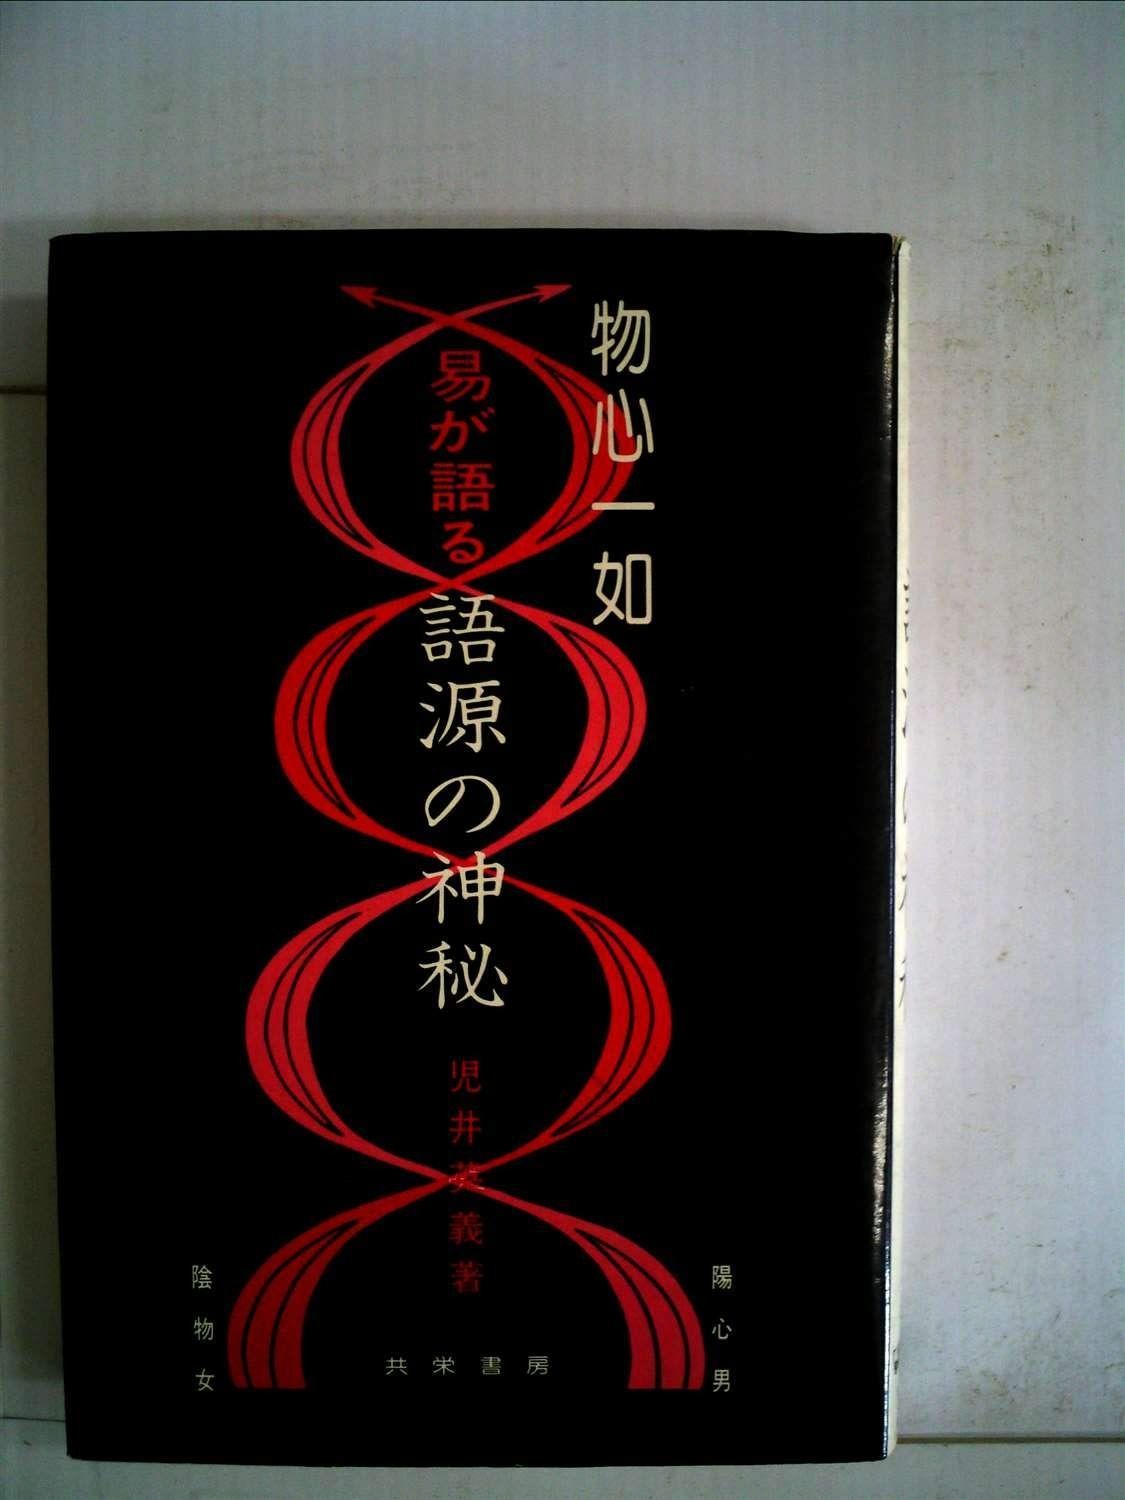 物心一如
易が語る
語源の神秘
児井英義著
陽心男
陰物女
共栄書房